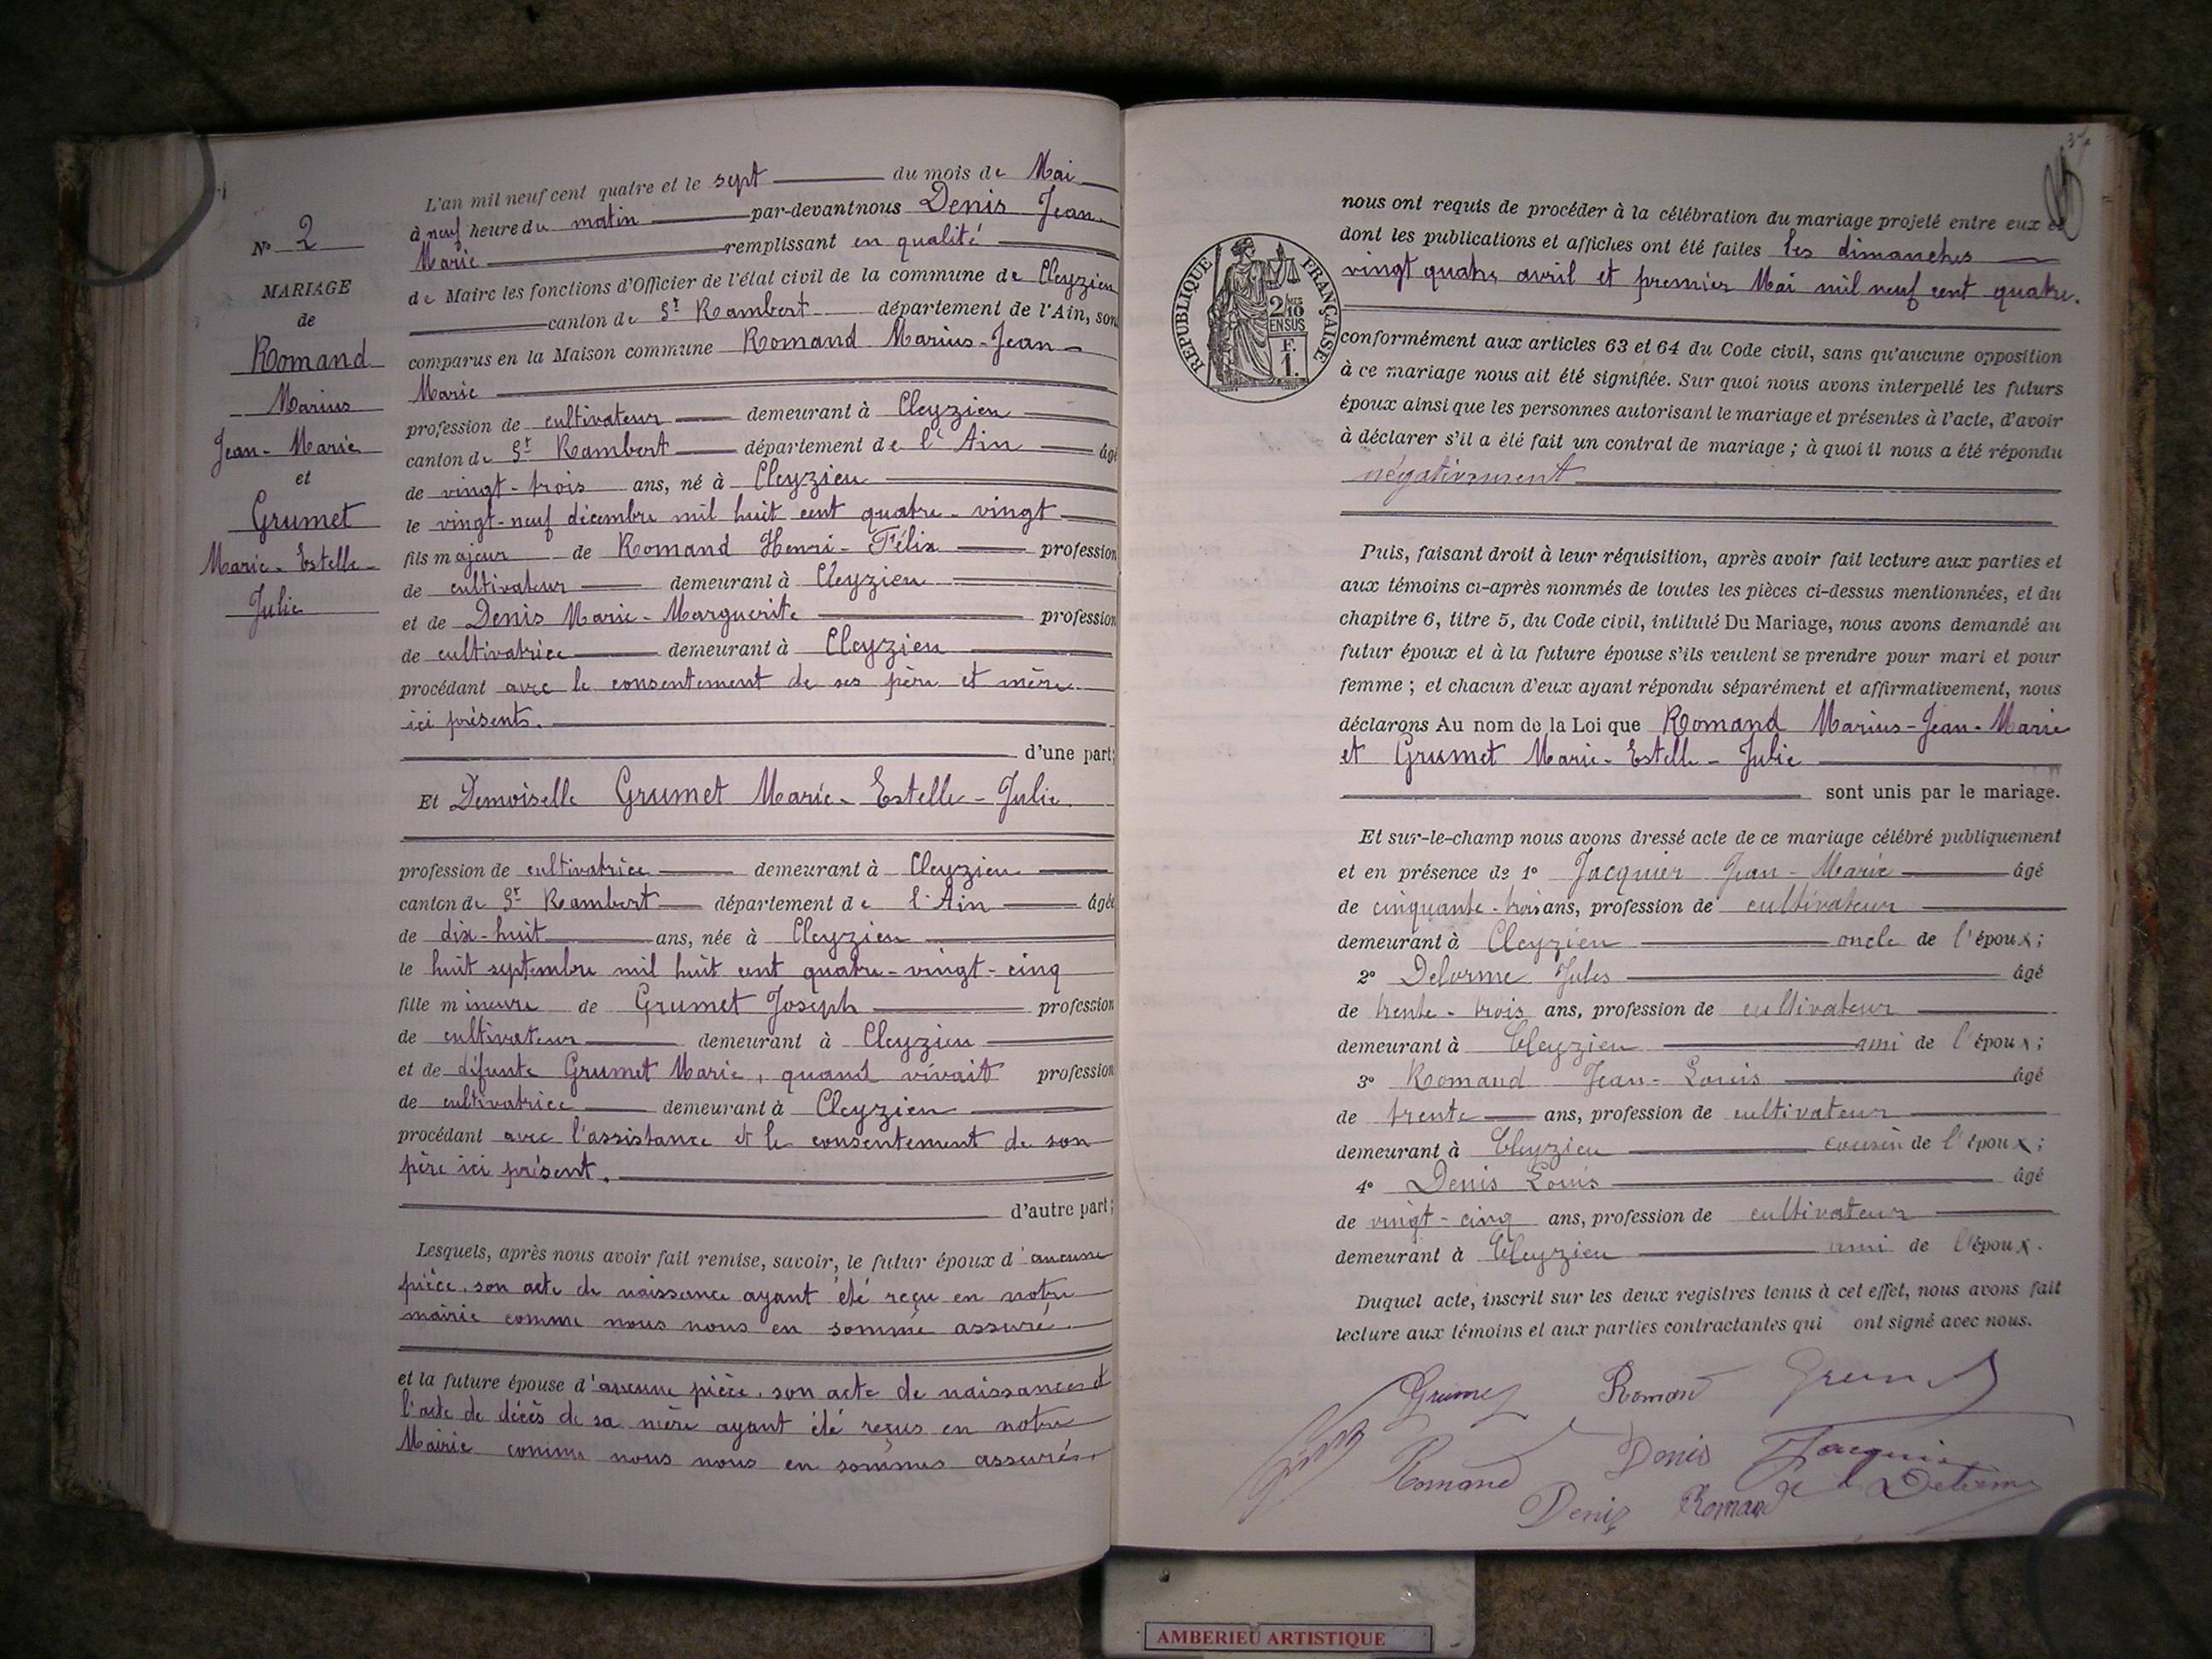 N° 2
MARIAGE
de
Romand
Marius
Jean-Marie
et
Grumet
Marie-Estelle-
Julie
L'an mil neuf cent quatre et le sept du mois de Mai
à neuf heure du matin par-devant nous Denis Jean-
Marie remplissant en qualité
de Maire les fonctions d'Officier de l'état civil de la commune de Cleyzieu
canton de St Rambert département de l'Ain, son
comparus en la Maison commune Romand Marius-Jean-
Marie
profession de cultivateur demeurant à Cleyzieu
canton de St Rambert département de l'Ain âgé
de vingt-trois ans, né à Cleyzieu
le vingt-neuf décembre mil huit cent quatre-vingt
fils majeur de Romand Henri-Félix profession
de cultivateur demeurant à Cleyzieu
et de Denis Marie-Marguerite profession
de cultivatrice demeurant à Cleyzieu
procédant avec le consentement de ses père et mère
ici présents.
d'une part;
Et Demoiselle Grumet Marie-Estelle-Julie
profession de cultivatrice demeurant à Cleyzieu
canton de St Rambert département de l'Ain âgée
de dix-huit ans, née à Cleyzieu
le huit septembre mil huit cent quatre-vingt-cinq
fille mineure de Grumet Joseph profession
de cultivateur demeurant à Cleyzieu
et de défunte Grumet Marie, quand vivait profession
de cultivatrice demeurant à Cleyzieu
procédant avec l'assistance et le consentement de son
père ici présent.
d'autre part;
Lesquels, après nous avoir fait remise, savoir, le futur époux d'aucune
pièce, son acte de naissance ayant été reçu en notre
mairie comme nous nous en somme assuré.
et la future épouse d'aucune pièce, son acte de naissance et
l'acte de décès de sa mère ayant été reçus en notre
Mairie comme nous nous en sommes assurés
RÉPUBLIQUE FRANÇAISE
2/10
EN SUS
F.
1.
nous ont requis de procéder à la célébration du mariage projeté entre eux et
dont les publications et affiches ont été faites les dimanches
vingt quatre avril et premier Mai mil neuf cent quatre.
conformément aux articles 63 et 64 du Code civil, sans qu'aucune opposition
à ce mariage nous ait été signifiée. Sur quoi nous avons interpellé les futurs
époux ainsi que les personnes autorisant le mariage et présentes à l'acte, d'avoir
à déclarer s'il a été fait un contrat de mariage; à quoi il nous a été répondu
négativement
Puis, faisant droit à leur réquisition, après avoir fait lecture aux parties et
aux témoins ci-après nommés de toutes les pièces ci-dessus mentionnées, et du
chapitre 6, titre 5, du Code civil, intitulé Du Mariage, nous avons demandé au
futur époux et à la future épouse s'ils veulent se prendre pour mari et pour
femme; et chacun d'eux ayant répondu séparément et affirmativement, nous
déclarons Au nom de la Loi que Romand Marius-Jean-Marie
et Grumet Marie-Estelle-Julie
sont unis par le mariage.
Et sur-le-champ nous avons dressé acte de ce mariage célébré publiquement
et en présence de 1° Jacquier Jean-Marie âgé
de cinquante-trois ans, profession de cultivateur
demeurant à Cleyzieu oncle de l'époux;
2° Delorme Jules âgé
de trente-trois ans, profession de cultivateur
demeurant à Cleyzieu ami de l'époux;
3° Romand Jean-Louis âgé
de trente ans, profession de cultivateur
demeurant à Cleyzieu cousin de l'époux;
4° Denis Louis âgé
de vingt-cinq ans, profession de cultivateur
demeurant à Cleyzieu ami de l'époux.
Duquel acte, inscrit sur les deux registres tenus à cet effet, nous avons fait
lecture aux témoins et aux parties contractantes qui ont signé avec nous.
Grumet Romand Grumet
Romand Denis Jacquier
Denis Romand Delorme
AMBERIEU ARTISTIQUE